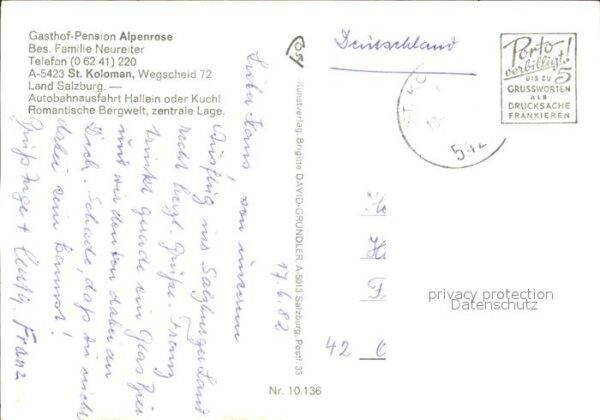 Gasthof-Pension Alpenrose
Bes. Familie Neureiter
Telefon (0 62 41) 220
A-5423 St. Koloman, Wegscheid 72
Land Salzburg. —
Autobahnausfahrt Hallein oder Kuchl
Romantische Bergwelt, zentrale Lage.
17.6.82
Hans,
von unserem
Ausflug ins Salzburger Land
recht herzl. Grüße. Franz
trinkt gerade ein Glas Bier
und wir denken dabei an
Dich. Schade, daß Du nicht
dabei sein kannst!
Grüß Inge +
Franz
Kunstverlag, Brigitte DAVID-GRÜNDLER, A-5013 Salzburg, Postf. 35
Nr. 10.136
Deutschland
Porto
verbilligt!
BIS ZU
5
GRUSSWORTEN
ALS
DRUCKSACHE
FRANKIEREN
ST. KO
542
H
42 6
privacy protection
Datenschutz